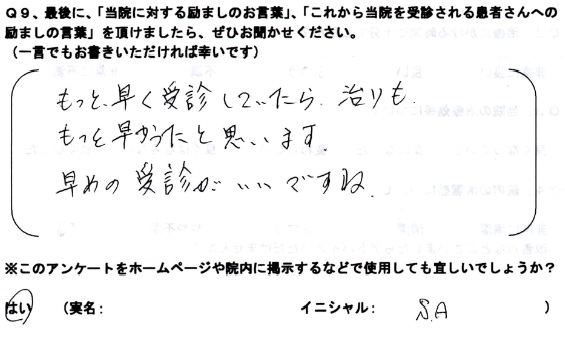 Q9、最後に、「当院に対する励ましのお言葉」、「これから当院を受診される患者さんへの
励ましの言葉」を頂けましたら、ぜひお聞かせください。
(一言でもお書きいただければ幸いです)
もっと、早く受診していたら、治りも、
もっと早かったと思います。
早めの受診がいいですね。
※このアンケートをホームページや院内に掲示するなどで使用しても宜しいでしょうか?
はい (実名: イニシャル: S.A )